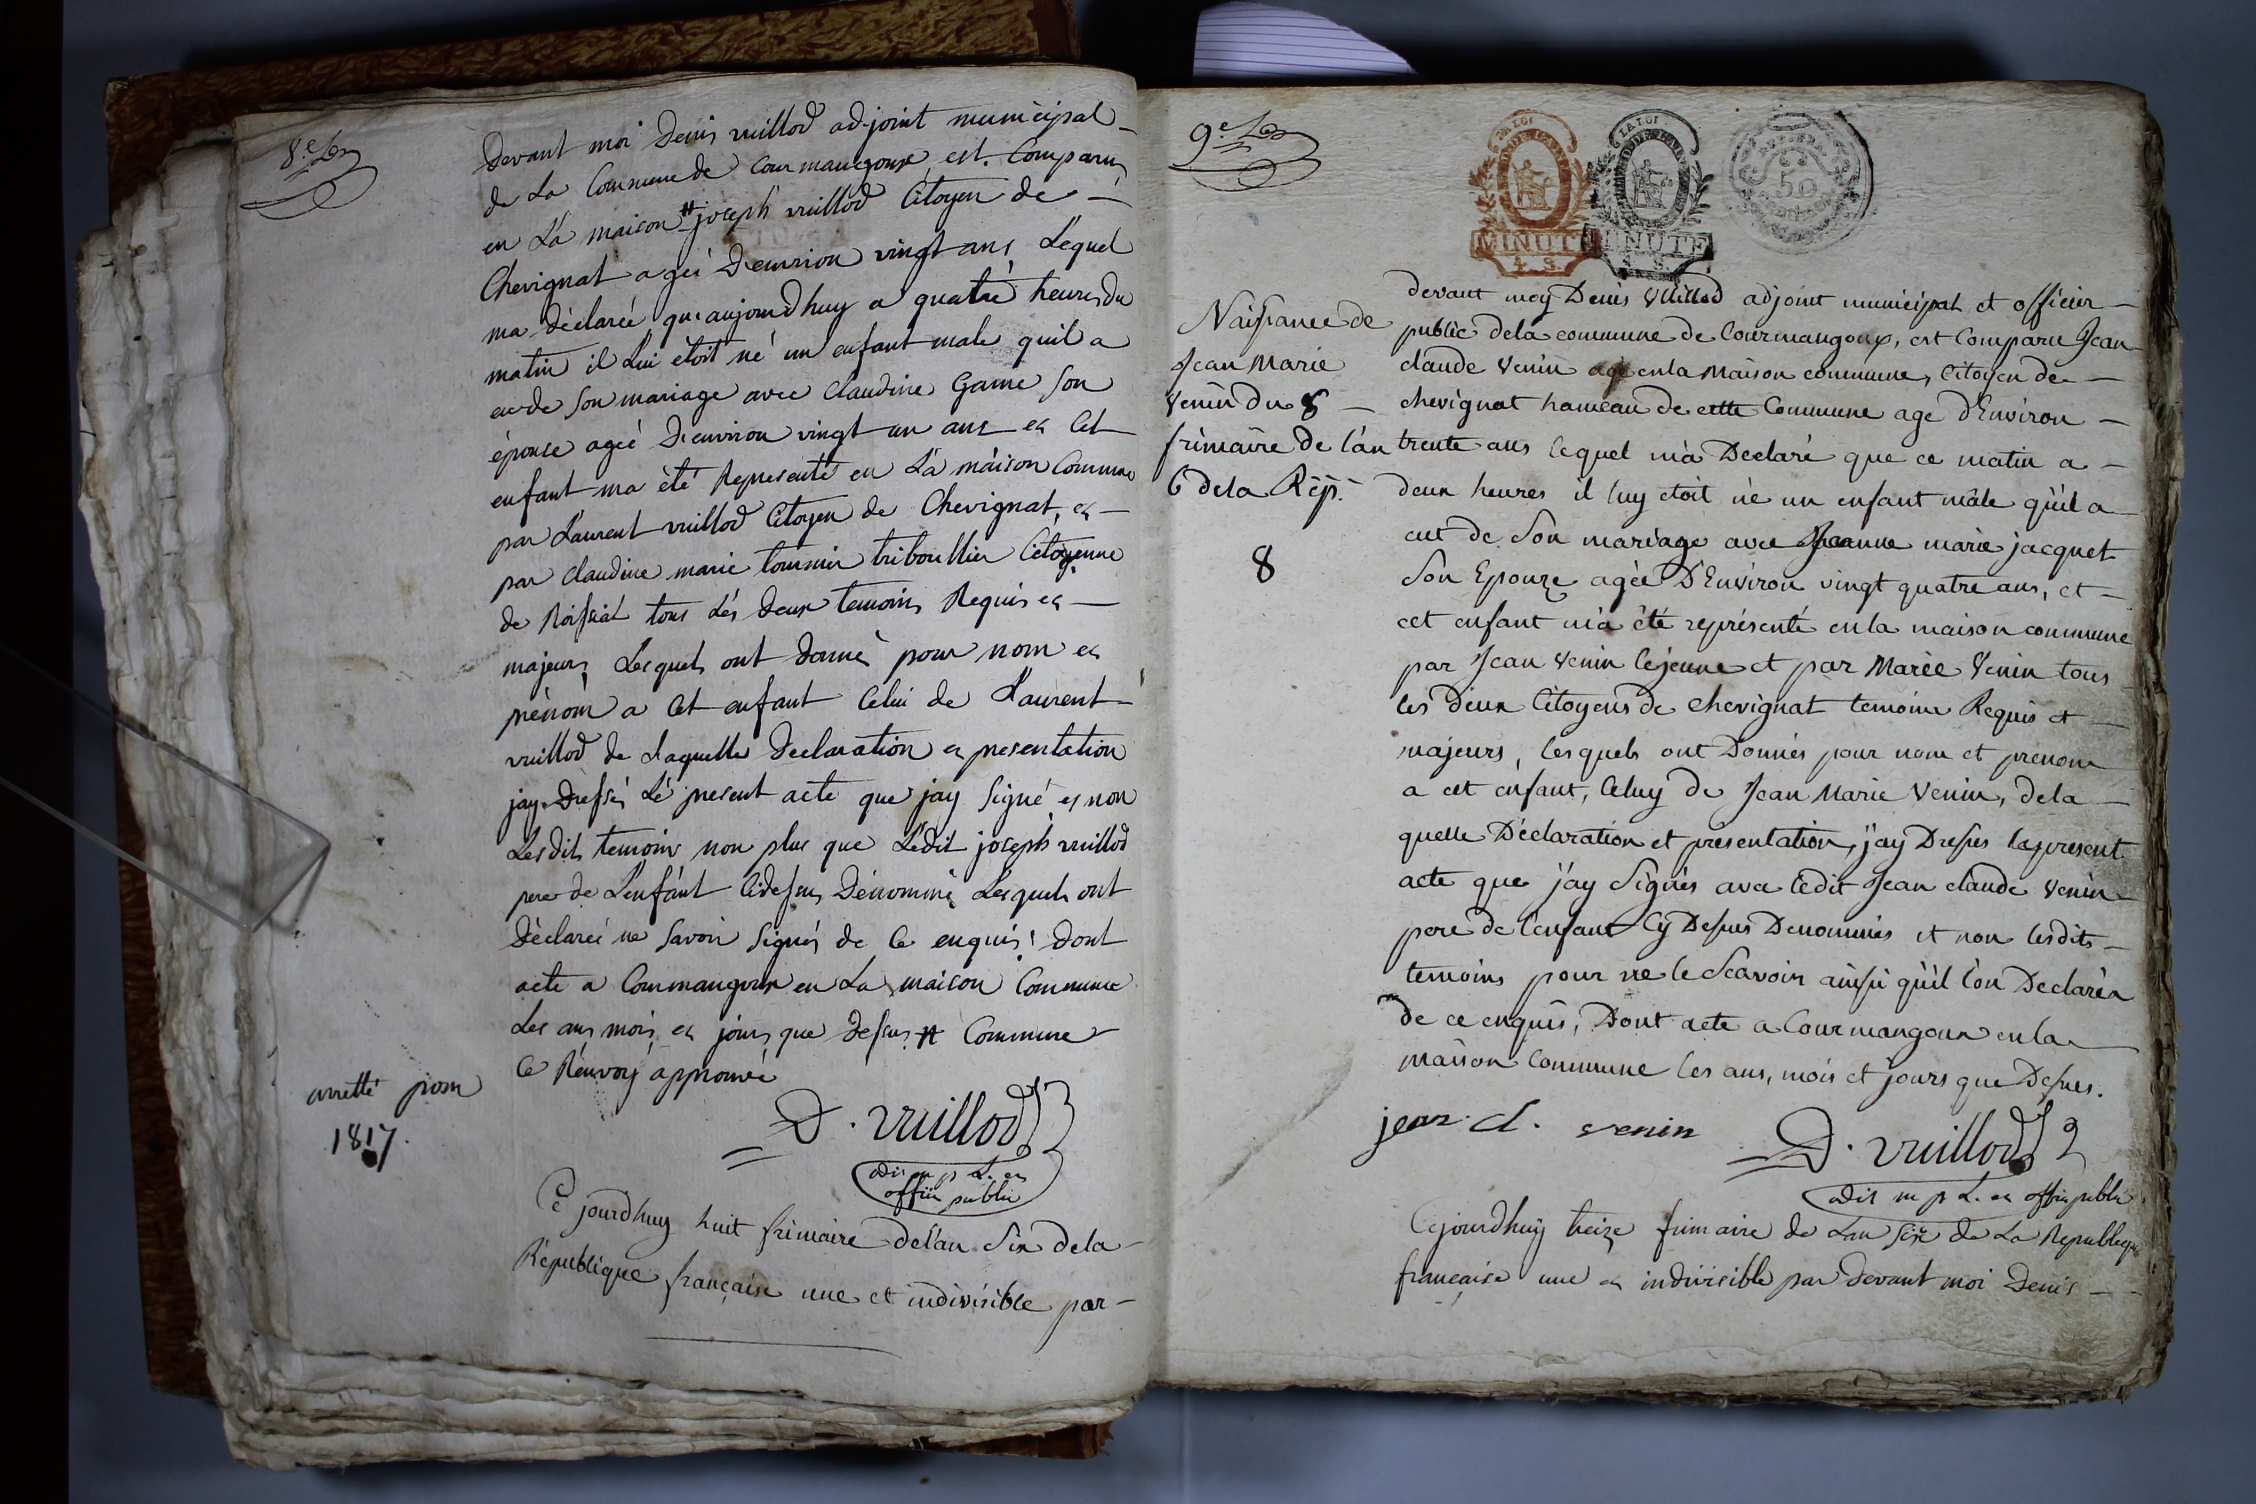 8.e
Devant moi Denis vuillod adjoint municipal
de La Commune de Courmangoux est Comparus
en La maison # joseph vuillod Citoyen de
Chevignat agé Denvirion vingt ans Lequel
ma déclaréé que aujourdhuy a quatre heures du
matin il Lui étoit né un enfant male quil a
eu de Son mariage avec Claudine Game Son
épouse ageé Denvirion vingt un ans et Cet
enfant ma été Representé en La maison Commune
par Laurent vuillod Citoyen de Chevignat, et
par Claudine marie tournier triboullier Citoyenne
de Roissiat tous Les deux temoins Requis et
majeurs Lesquels ont donnés pour nom et
prénom a Cet enfant Celui de Laurent
vuillod de Laquelle Declaration et presentation
jay Dressés Le present acte que jay Signé et non
Lesdits temoins non plus que Ledit joseph vuillod
pere de Lenfant Cidessus Dénommé Lesquels ont
Déclaréé ne Savoir Signés de Ce enquis! Dont
acte a Courmangoux en La maison Commune
Les ans mois et jours que Dessus # Commune
Ce Renvoy approuvé
arretté pour
1817.
D. vuillod
adjt m p L. et
offiie public
Ce jourdhuy huit frimaire de lan Six dela
République française une et indivisible par
9.e
LA LOI
MINUTE
4. S.
LA LOI
MINUTE
4 S.
50
Naissance de
Jean Marie
Venin du 8
frimaire de l'an
6 dela Rép.
8
devant moy Denis Vuillod adjoint municipal et officier
public dela commune de Courmangoux, est Comparu Jean
claude Venin agé en la Maison commune, Citoyen de
chevignat hameau de cette Commune age d'Environ
trente ans lequel m'a Declaré que ce matin a
deux heures il luy etoit né un enfant mâle qu'il a
eut de Son mariage avec Jeanne marie jacquet
Son Epouze agée D'Environ vingt quatre ans, et
cet enfant m'a été représenté en la maison commune
par Jean Venin lejeune et par Marie Venin tous
les deux Citoyens de chevignat temoins Requis et
majeurs, lesquels ont Donnés pour nom et prenom
a cet enfant, Celuy de Jean Marie Venin, dela
quelle Déclaration et présentation, j'ay Dressés le present
acte que j'ay Signés avec ledit Jean claude Venin
pere de l'enfant Cy Dessus Denommés et non lesdits
temoins pour ne le Scavoir ainsi qu'il l'on Declarés
de ce enquis, Dont acte a Courmangoux en la
Maison Commune les ans, mois et jours que Dessus.
jean. cl. venin
D. vuillod
adjt m p L. et offiie public
Cejourdhuy treize frimaire de Lan Sixe de La Republique
française une et indivisible par devant moi Denis